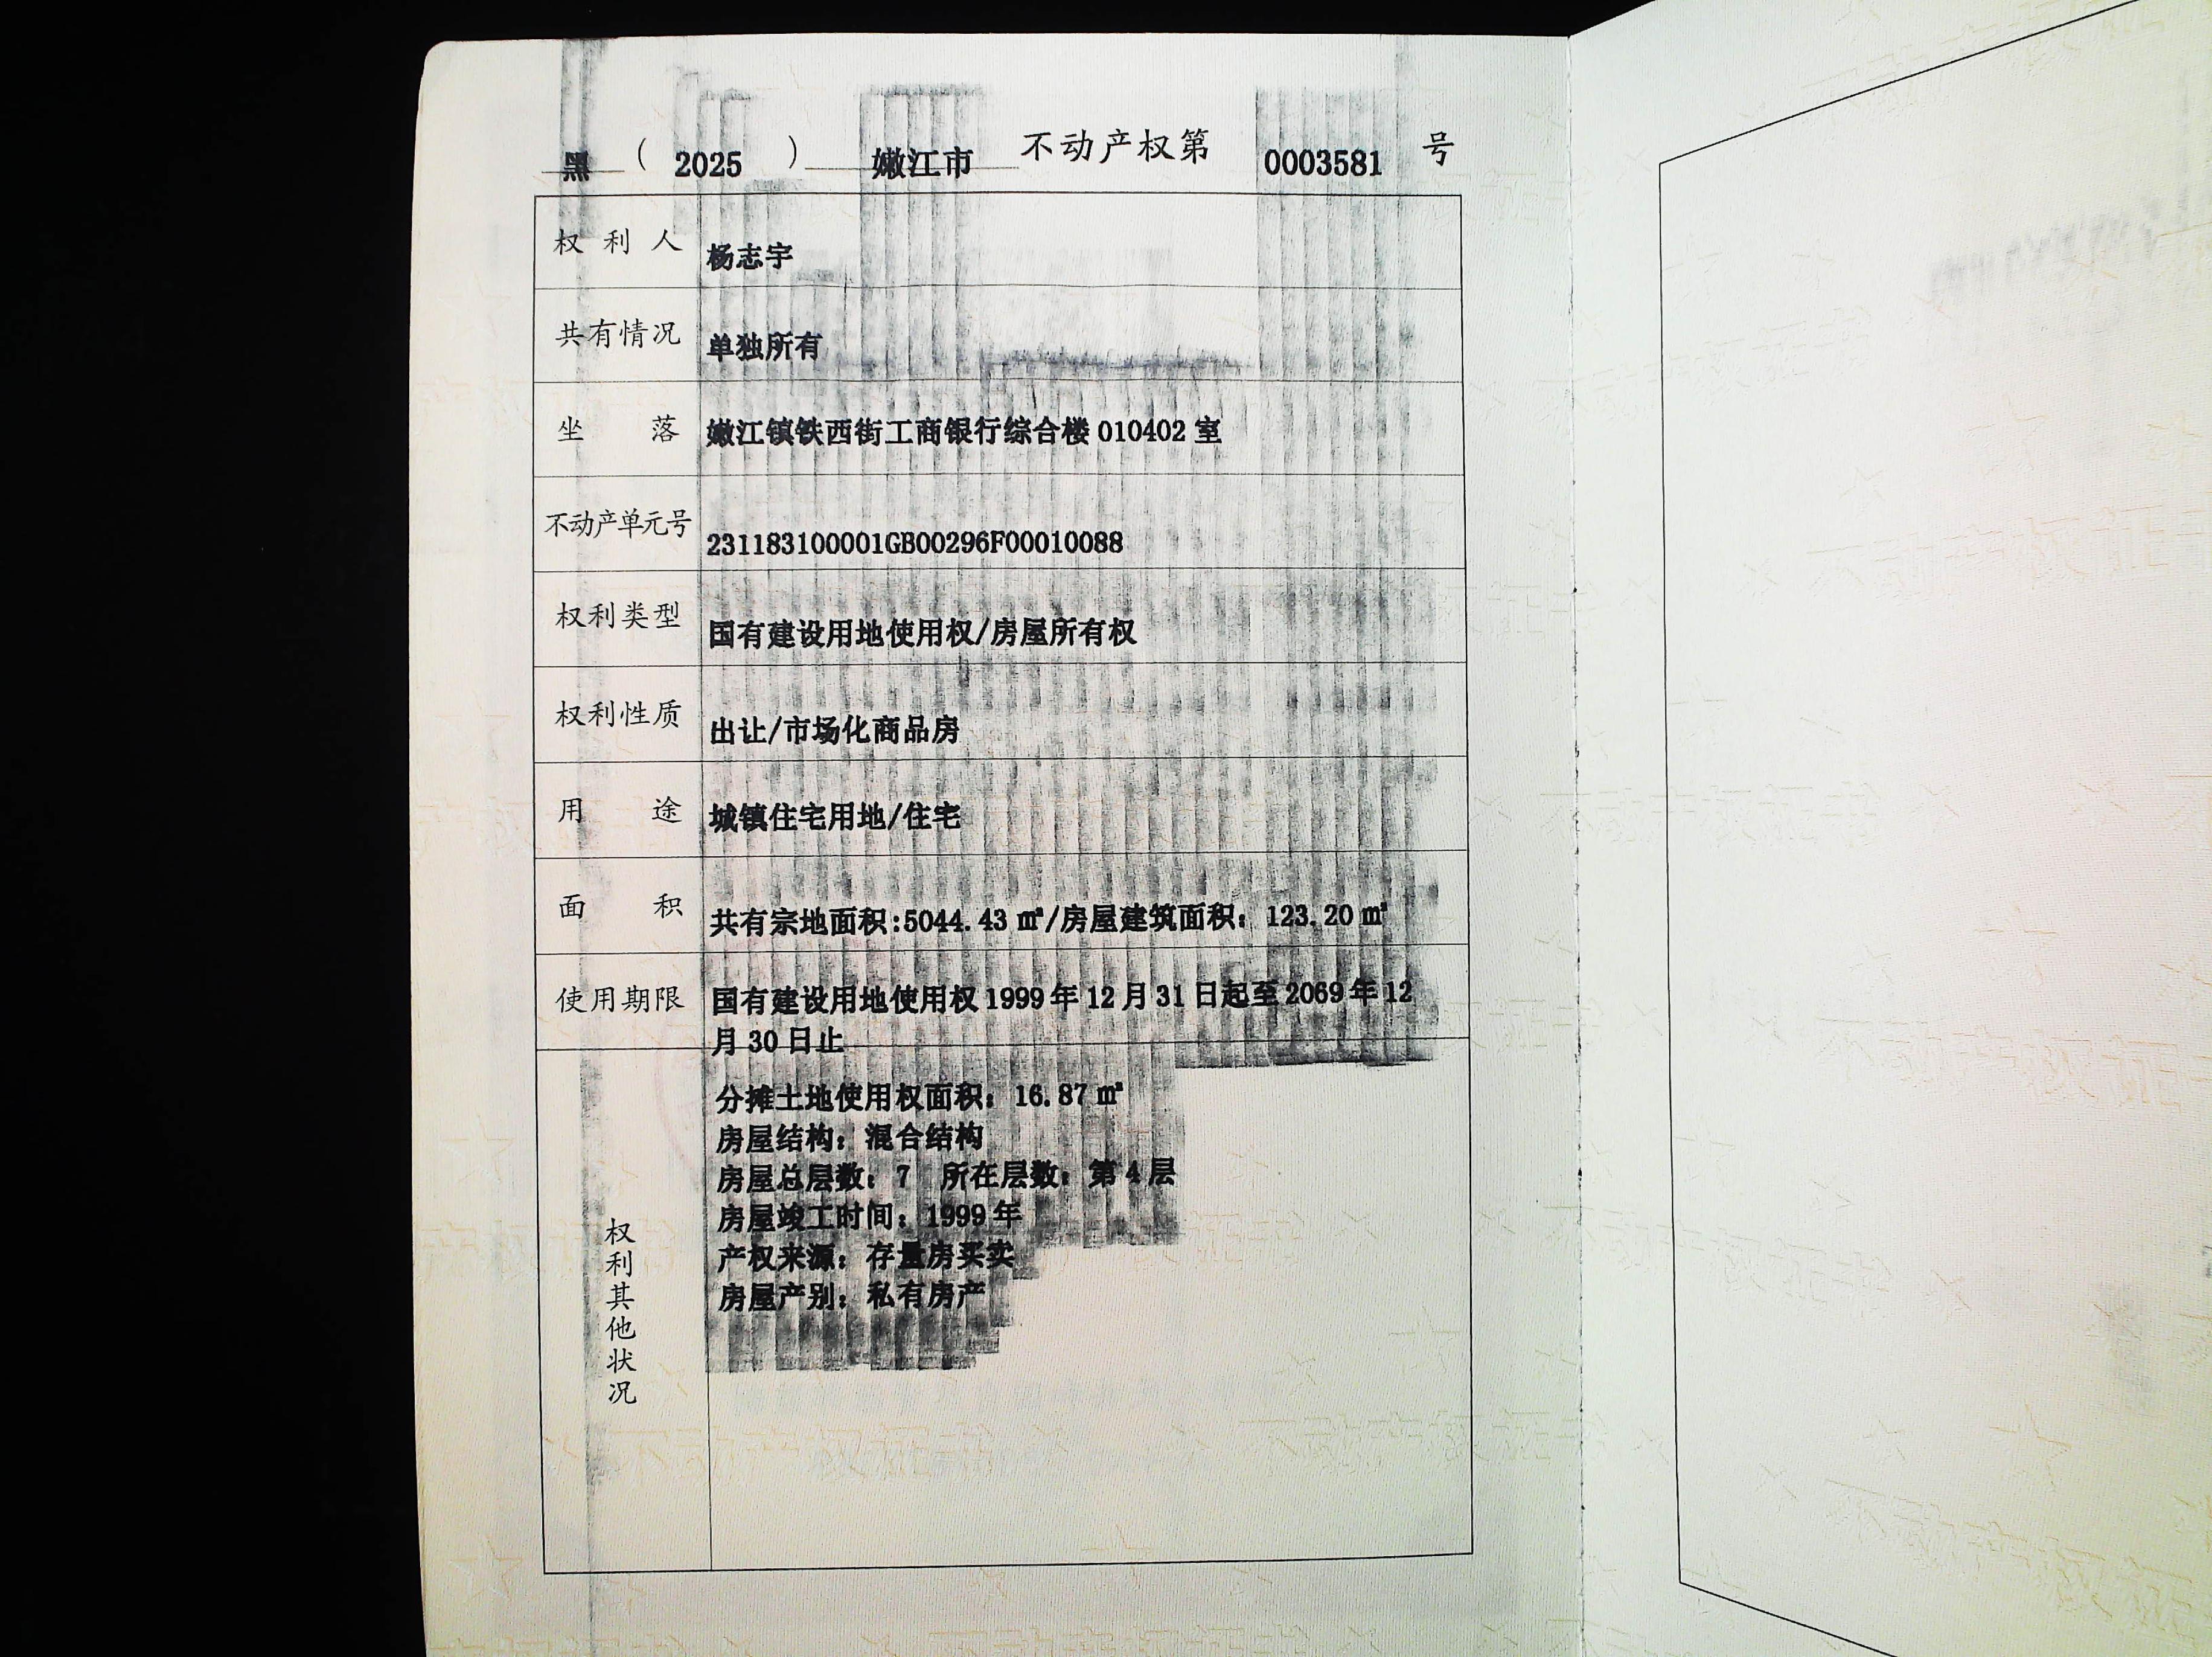 黑 ( 2025 ) 嫩江市 不动产权第 0003581 号
权利人 杨志宇
共有情况 单独所有
坐落 嫩江镇铁西街工商银行综合楼 010402 室
不动产单元号 231183100001GB00296F00010088
权利类型 国有建设用地使用权/房屋所有权
权利性质 出让/市场化商品房
用途 城镇住宅用地/住宅
面积 共有宗地面积:5044.43 ㎡/房屋建筑面积: 123.20 ㎡
使用期限 国有建设用地使用权 1999 年 12 月 31 日起至 2069 年 12
月 30 日止
权利其他状况
分摊土地使用权面积: 16.87 ㎡
房屋结构: 混合结构
房屋总层数: 7 所在层数: 第 4 层
房屋竣工时间: 1999 年
产权来源: 存量房买卖
房屋产别: 私有房产